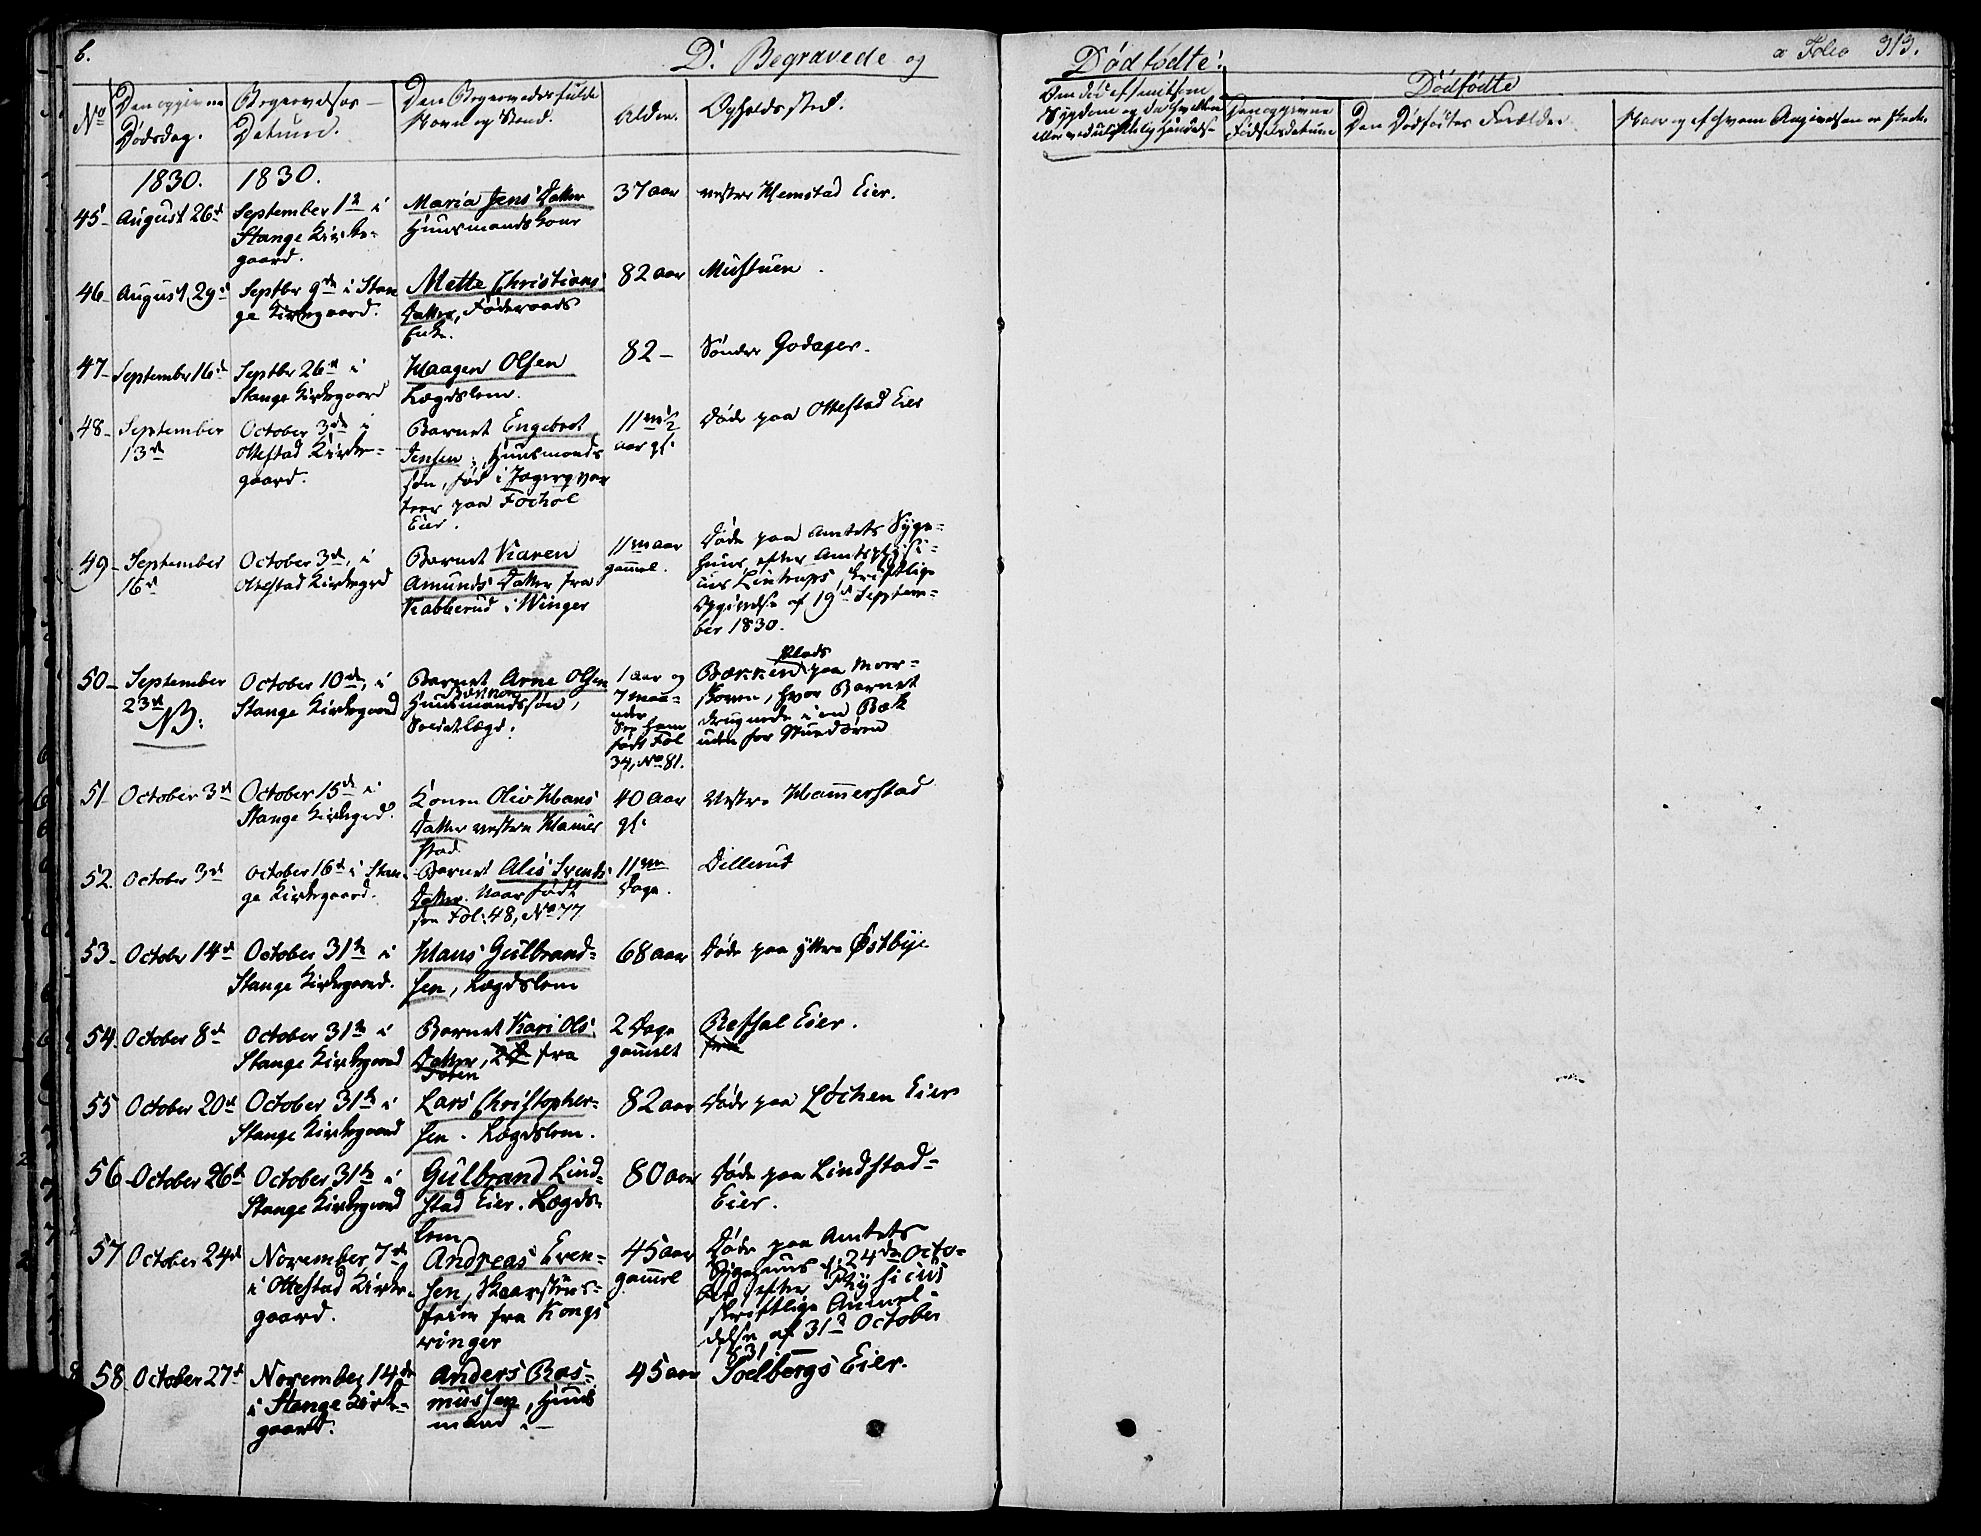 6.
D. Begravede og
Dødfødte.
a Folio 313.
No
Den opgivne
Dødsdag.
Begravelses-
Datum.
Den Begravedes fulde
Navn og Stand.
Alder.
Opholdssted.
Om død af smitsom
Sygdom
Den opgivne
Fødselsdatum
Dødfødte
Den Dødfødtes Forældre.
Naar og af hvem Angivelsen er skeet.
1830. 1830.
45-
August 26d
September 12 i
Stange Kirke-
gaard.
Maria Jens Datter
Huusmandskone
37 aar
vestre Hemstad Eier.
46-
August 29d
Septbr 9de i Stan
ge Kirkegaard.
Mette Christians
Datter, Føderaads
Enke.
82 aar
Mustuen.
47-
September 16d
Septbr 26d i
Stange Kirkegaard
Haagen Olsen
Lægdslem.
82-
Søndre Godager.
48-
September
13d
October 3de i
Ottestad Kirke-
gaard.
Barnet Engebret
Jensen, Huusmands
søn, fød i Jægerqvar
teer paa Fochol
Eier.
11 m 1/2
aar gl.
Døde paa Ottestad Eier
49-
September
16d
October 3de, i
Ottestad Kirkegrd
Barnet Karen
Amunds Datter fra
Kabberud i Winger
11 m aar
gamel.
Døde paa Amtets Syge-
huus, efter Amtsphysi-
cus Lintrups skriftlige
Opgivelse af 19d Septem-
ber 1830.
50-
September
23d
NB.
October 10de, i
Stange Kirkegaard
Barnet Arne Olsen
Huusmandssøn,
Soldatlægd.
1 aar og
7 maa-
neder
See ham
født Fol
34, No 81.
Plads
Bækken paa Moer-
skoven, hvor Barnet
druknede i en Bæk
uden for Stuedøren
51-
October 3d
October 15de i
Stange Kirkegrd.
Konen Oliv Hans
Datter vestre Hamer
stad
40 aar
gl.
Vestre Hamerstad
52.
October 3d
October 16d i Stan-
ge Kirkegaard.
Barnet Alis Svends
Datter. Naar født
see Fol: 48, No 77
11 m
Dage.
Dillerut
53-
October 14d
October 31te i
Stange Kirkegaard.
Hans Gulbrand-
sen, Lægdslem
68 aar
Døde paa yttre Østbye
54-
October 8d
October 31te i
Stange Kirkegaard
Barnet Kari Ols
Datter, fra
2 Dage
gamelt
Refsal Eier.
55
October 20d
October 31te i
Stange Kirkegaard
Lars Christopher-
sen. Lægdslem.
82 aar
Døde paa Løchen Eier
56-
October 26d
October 31te i
Stange Kirkegaard
Gulbrand Lind-
stad Eier. Lægds-
lem
80 aar
Døde paa Lindstad-
Eier.
57
October 24d
November 7de
i Ottestad Kirke-
gaard.
Andreas Even-
sen, Skaarstens-
feier fra Kongs
vinger
45 aar
gamel
Døde paa Amtets
Sygehuus d: 24de Octo-
ber efter Physicus
skriftlige Anmel-
delse af 31d October
1831
58
October 27d
November 14de
i Stange Kirke-
gaard.
Anders Ras-
mussen, Huus
mand.
45 aar
Soelbergs Eier.